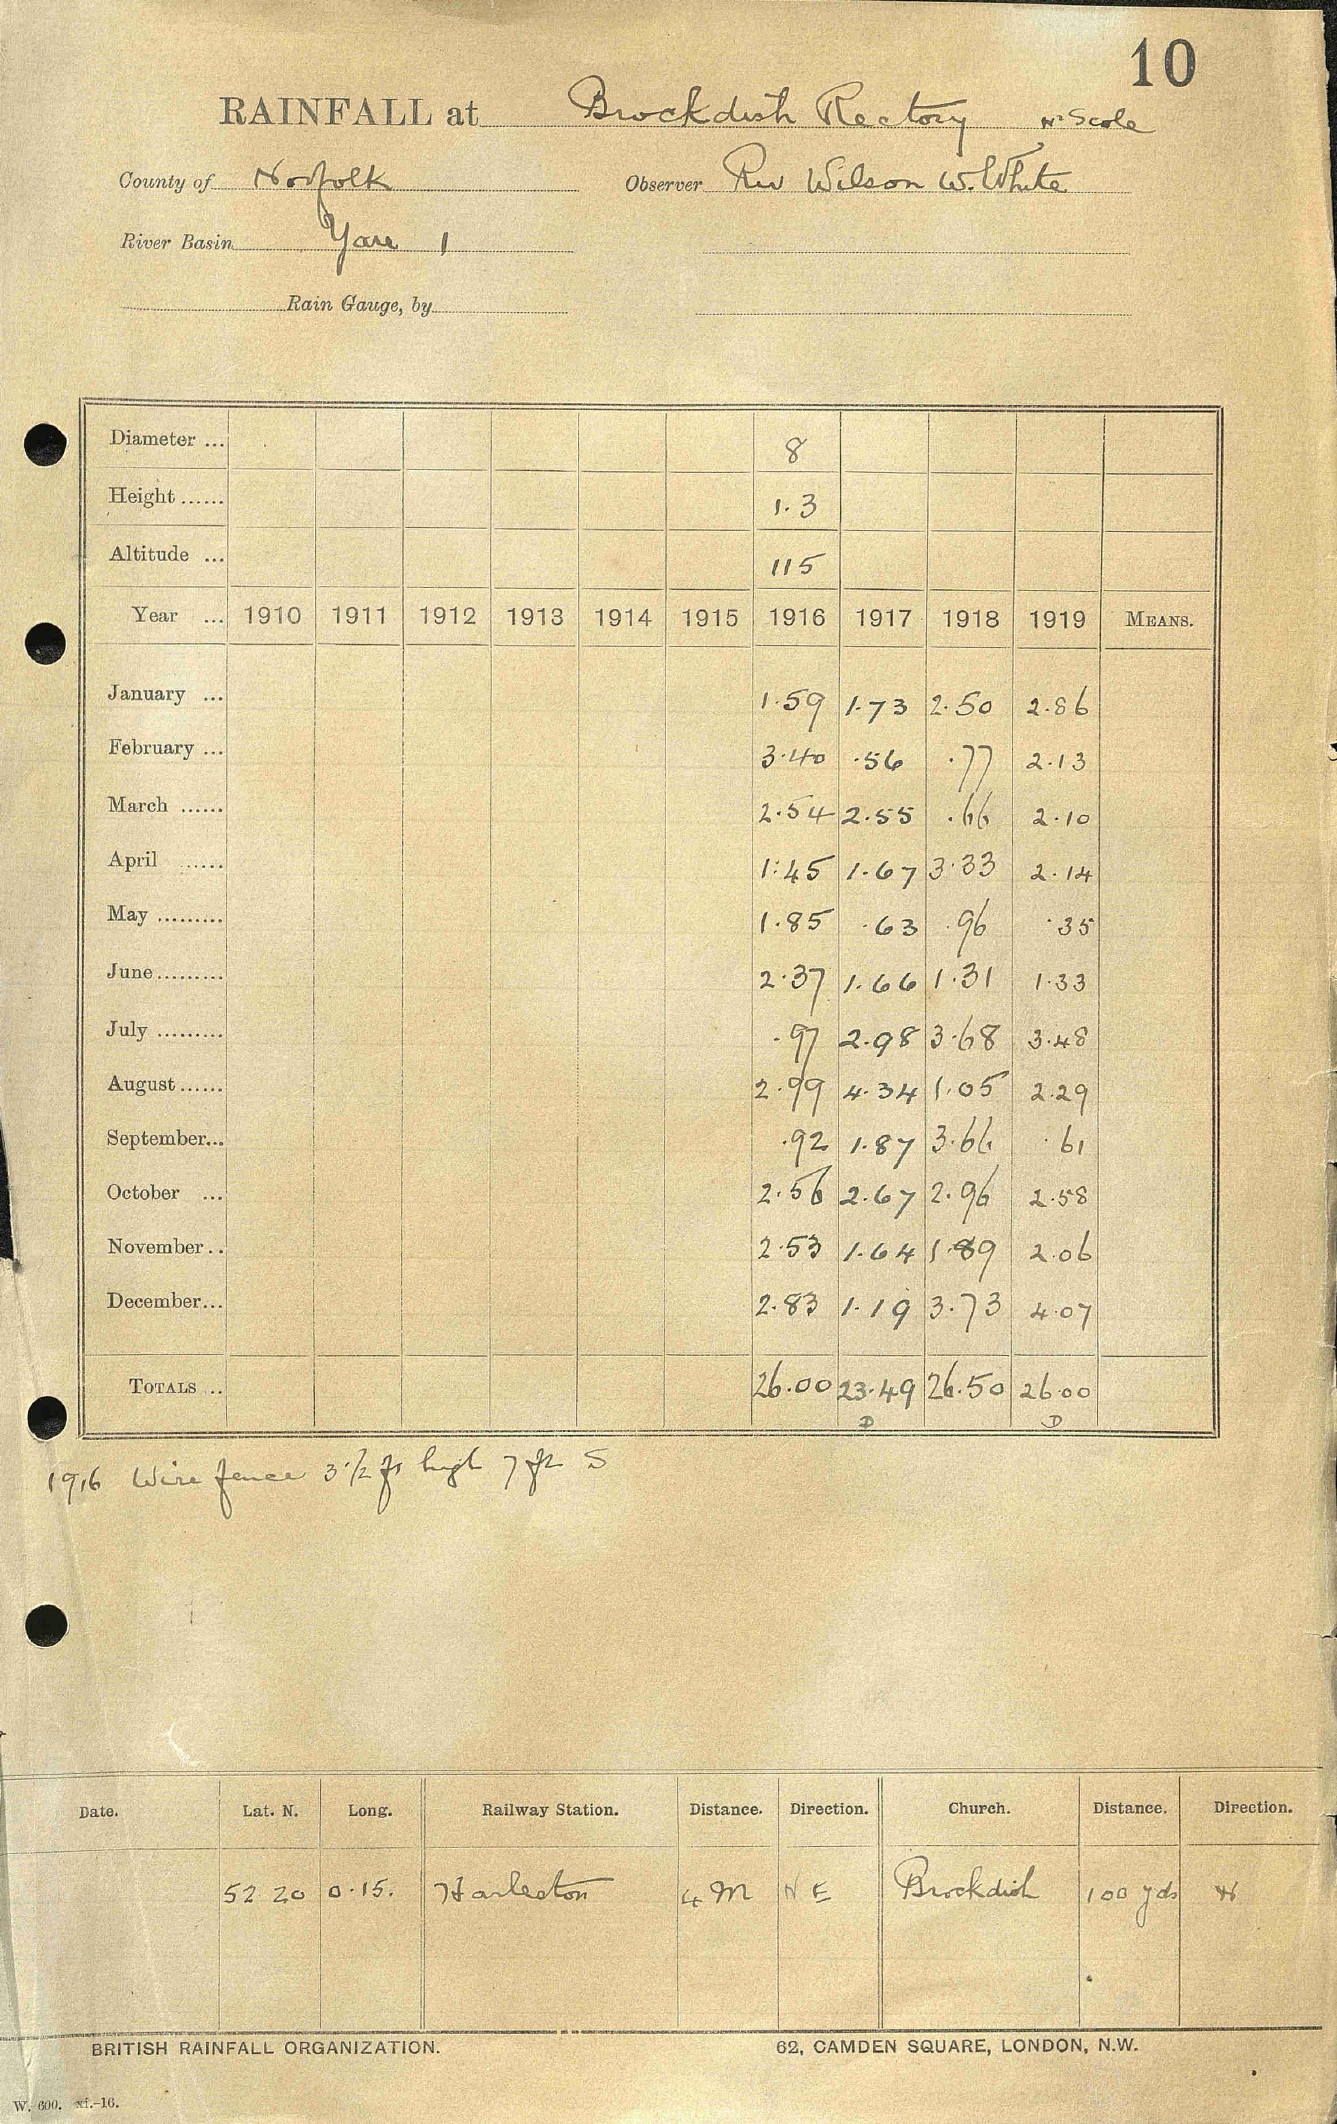 10
RAINFALL at Brockdish Rectory Nr Scole
County of Norfolk Observer Rev Wilson W. White
River Basin Yare 1
Rain Gauge, by
Diameter ... 8
Height ...... 1.3
Altitude ... 115
Year ... 1910 1911 1912 1913 1914 1915 1916 1917 1918 1919 MEANS.
January ... 1.59 1.73 2.50 2.86
February ... 3.40 .56 .77 2.13
March ...... 2.54 2.55 .66 2.10
April ...... 1.45 1.67 3.33 2.14
May ......... 1.85 .63 .96 .35
June ......... 2.37 1.66 1.31 1.33
July ......... .97 2.98 3.68 3.48
August ...... 2.99 4.34 1.05 2.29
September... .92 1.87 3.66 .61
October ... 2.56 2.67 2.96 2.58
November .. 2.53 1.64 1.89 2.06
December... 2.83 1.19 3.73 4.07
TOTALS .. 26.00 23.49 26.50 26.00
D D
1916 Wire fence 3 1/2 ft high 7 ft S
Date. Lat. N. Long. Railway Station. Distance. Direction. Church. Distance. Direction.
52 20 0.15. Harleston 4 M N E Brockdish 100 yds
BRITISH RAINFALL ORGANIZATION. 62, CAMDEN SQUARE, LONDON, N.W.
W. 600. xi.-16.